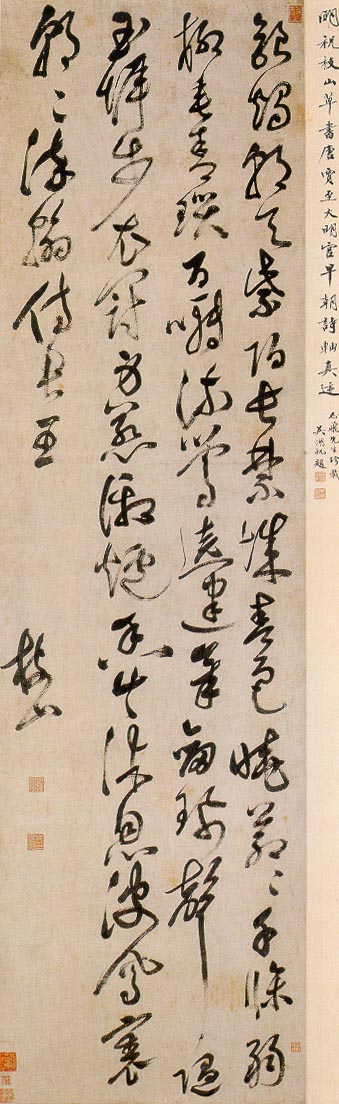 明祝枝山草書唐賈至大明宮早朝詩軸真迹
先生珍藏
吳湖帆題
銀燭朝天紫陌長禁城春色曉蒼〻千條弱
柳垂青瑣百囀流鶯遶建章劍珮聲隨
玉墀步衣冠身惹御爐香共沐恩波鳳裏
朝〻染翰侍君王
枝山